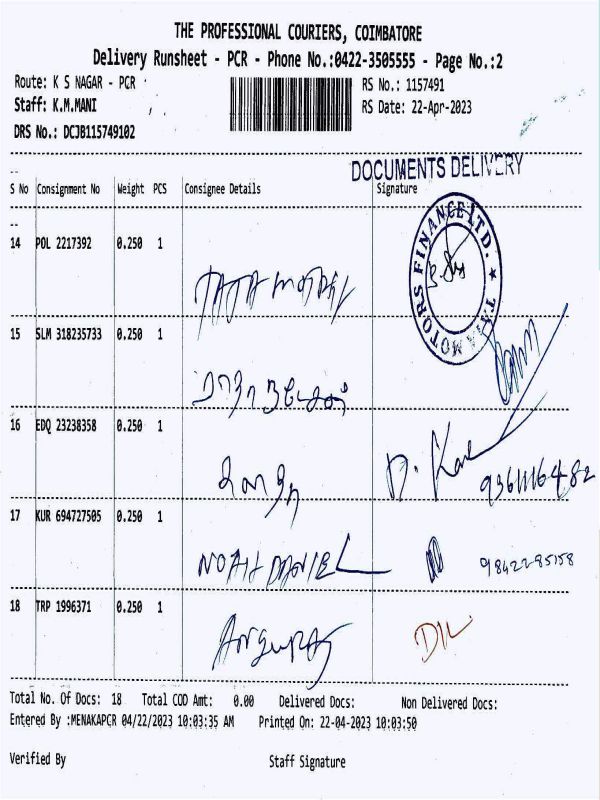 THE PROFESSIONAL COURIERS, COIMBATORE
Delivery Runsheet - PCR - Phone No.:0422-3505555 - Page No.:2
Route: K S NAGAR - PCR
RS No.: 1157491
Staff: K.M.MANI
RS Date: 22-Apr-2023
DRS No.: DCJB115749102
DOCUMENTS DELIVERY
S No Consignment No Weight PCS Consignee Details Signature
14 POL 2217392 0.250 1
TATA MOTORS FINANCE LTD.
TATA MOTORS
15 SLM 318235733 0.250 1
16 EDQ 23238358 0.250 1
9361116482
17 KUR 694727505 0.250 1
NOAH DANIEL 9842285158
18 TRP 1996371 0.250 1
Total No. Of Docs: 18 Total COD Amt: 0.00 Delivered Docs: Non Delivered Docs:
Entered By :MENAKAPCR 04/22/2023 10:03:35 AM Printed On: 22-04-2023 10:03:50
Verified By Staff Signature